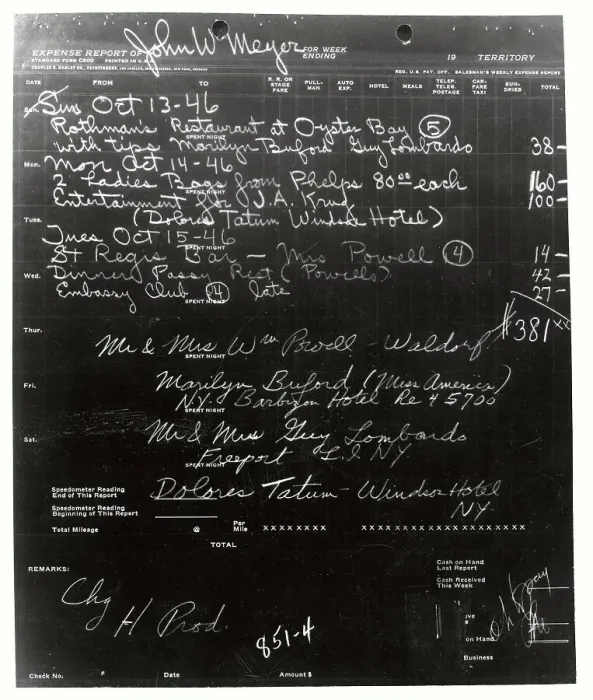 EXPENSE REPORT OF John W Meyer FOR WEEK ENDING 19 TERRITORY
STANDARD FORM C600 PRINTED IN U.S.A.
REG. U.S. PAT. OFF. SALESMAN'S WEEKLY EXPENSE REPORT
DATE FROM TO R. R. OR STAGE FARE PULL-MAN AUTO EXP. HOTEL MEALS TELEP. TELEG. POSTAGE CAR-FARE TAXI SUN-DRIES TOTAL
Sun. Sun Oct 13-46
Rothman's Restaurant at Oyster Bay (5)
SPENT NIGHT
with tips Marilyn Buford Guy Lombardo 38-
Mon. Mon Oct 14-46
2 Ladies Bags from Phelps 80.00 each 160-
SPENT NIGHT
Entertainment for J.A. Krug 100-
(Dolores Tatum Windsor Hotel)
Tues. Tues Oct 15-46
SPENT NIGHT
St Regis Bar - Mrs Powell (4) 14-
Wed. Dinner Passy Rest (Powells) 42-
Embassy Club (4) late 27-
SPENT NIGHT
$381xx
Thur.
Mr & Mrs Wm Powell - Waldorf
SPENT NIGHT
Fri. Marilyn Buford (Miss America)
N.Y. Barbizon Hotel Re 45700
SPENT NIGHT
Sat. Mr & Mrs Guy Lombardo
Freeport L.I NY
SPENT NIGHT
Speedometer Reading End of This Report
Dolores Tatum - Windsor Hotel
NY.
Speedometer Reading Beginning of This Report
Total Mileage @ Per Mile XXXXXXXX XXXXXXXXXXXXXXXXXXXX
TOTAL
REMARKS:
Cash on Hand Last Report
Cash Received This Week
Chg
H Prod.
851-4
on Hand
Business
Check No. Date Amount $